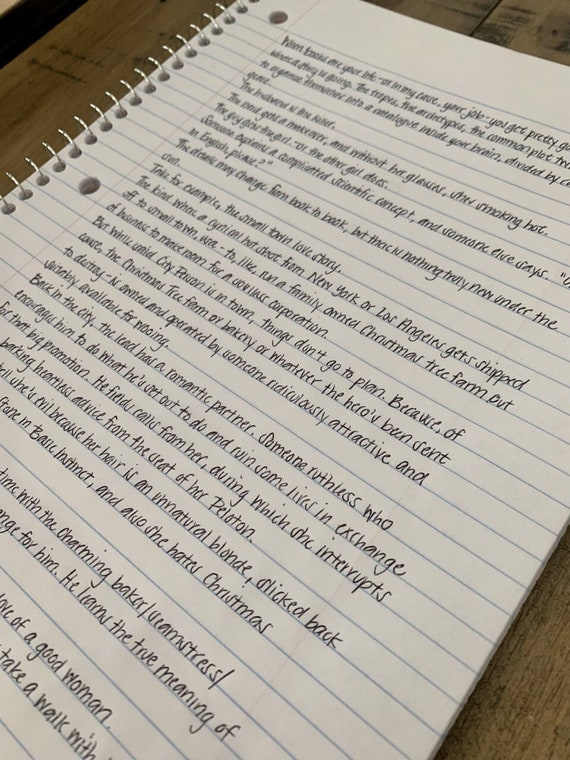 When books are your life - or in my case, your job - you get pretty go
where a story is going. The tropes, the archetypes, the common plot tw
to organize themselves into a catalogue inside your brain, divided by ca
genre.
The husband is the killer.
The nerd gets a makeover, and without her glasses, she's smoking hot.
The guy gets the girl - or the other girl does.
Someone explains a complicated scientific concept, and someone else says "U
in English, please?"
The details may change from book to book, but there is nothing truly new under the
sun.
Take, for example, the small town love story.
The kind where a cynical hot shot from New York or Los Angeles gets shipped
off to small town USA - to, like, run a family owned Christmas tree farm out
of business to make room for a soulless corporation.
But while said City Person is in town, things don't go to plan. Because, of
course, the Christmas Tree farm or bakery or whatever the hero's been sent
to destroy - is owned and operated by someone ridiculously attractive and
suitably available for wooing.
Back in the city, the lead has a romantic partner. Someone ruthless who
encourages him to do what he's set out to do and ruin some lives in exchange
for that big promotion. He fields calls from her, during which she interupts
barking heartless advice from the seat of her Peloton.
ell she's evil because her hair is an unnatural blonde, slicked back
Stone in Basic Instinct, and also she hates Christmas
time with the charming baker/seamstress/
ange for him. He learns the true meaning of
ove of a good woman.
take a walk with